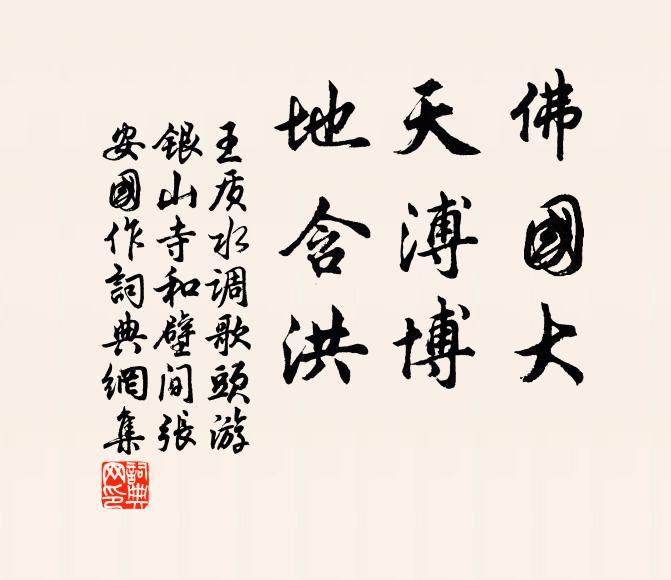 佛國大
天溥博
地含洪
王质水调歌頭游
銀山寺和壁间張
安國作詞典網集
詞典网印